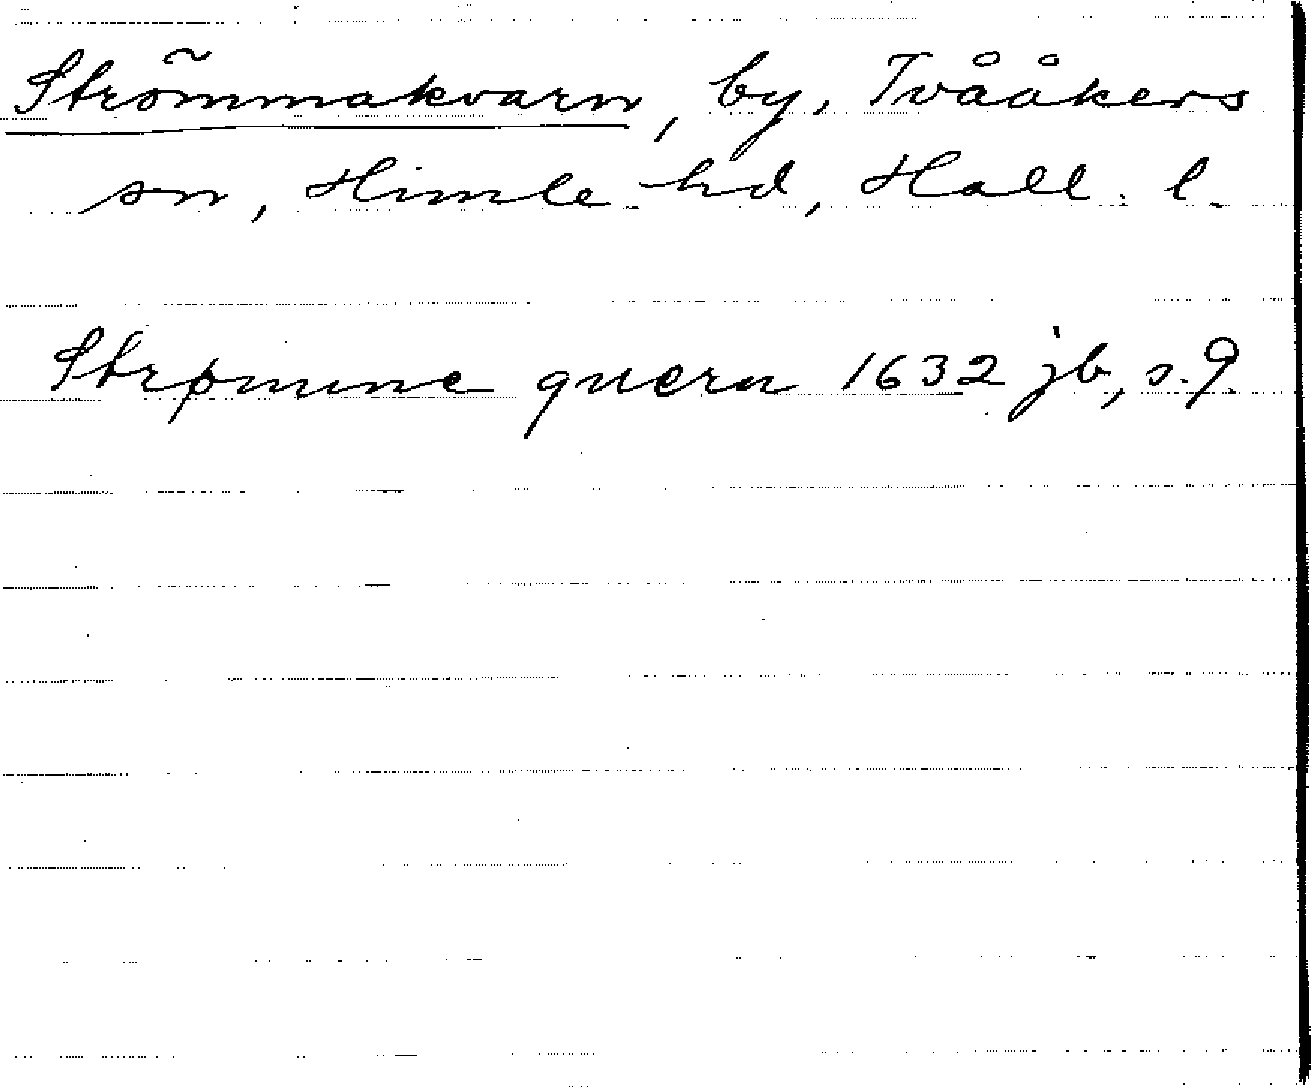 Strömmakvarn, by, Tvååkers
sn, Himle hd, Hall. l.
Strømme quern 1632 jb, s. 9.